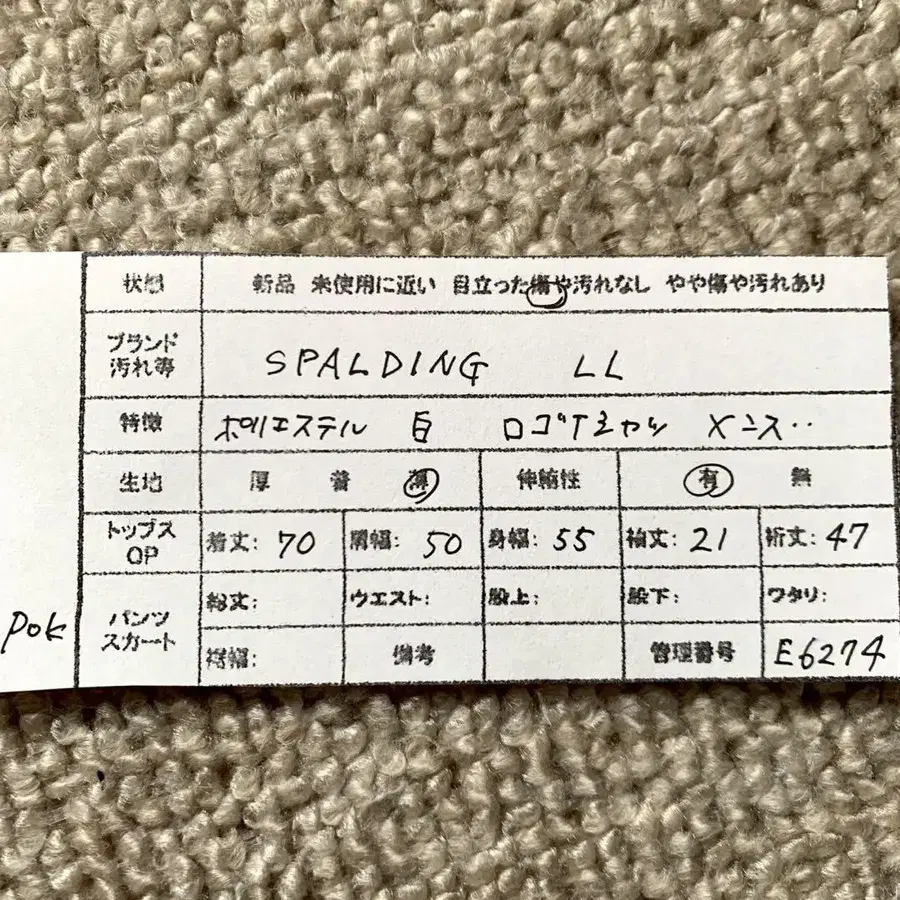 状態 新品 未使用に近い 目立った傷や汚れなし やや傷や汚れあり
ブランド
汚れ等 SPALDING LL
特徴 ポリエステル 白 ロゴTシャツ メンズ
生地 厚 普 薄 伸縮性 有 無
トップス
OP 着丈: 70 肩幅: 50 身幅: 55 袖丈: 21 裄丈: 47
パンツ
スカート 総丈: ウエスト: 股上: 股下: ワタリ:
裾幅: 備考 管理番号 E6274
pok